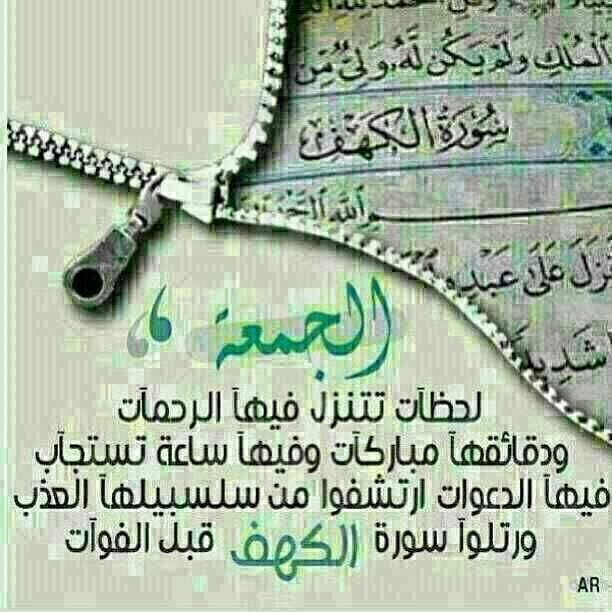 الملك ولم يكن له ولي من
سورة الكهف
نزل على عبده
شديد
الجمعة
لحظآت تتنزل فيهآ الرحمآت
ودقائقهآ مباركآت وفيهآ ساعة تستجآب
فيهآ الدعوات ارتشفوا من سلسبيلهآ العذب
ورتلوآ سورة الكهف قبل الفوآت
AR